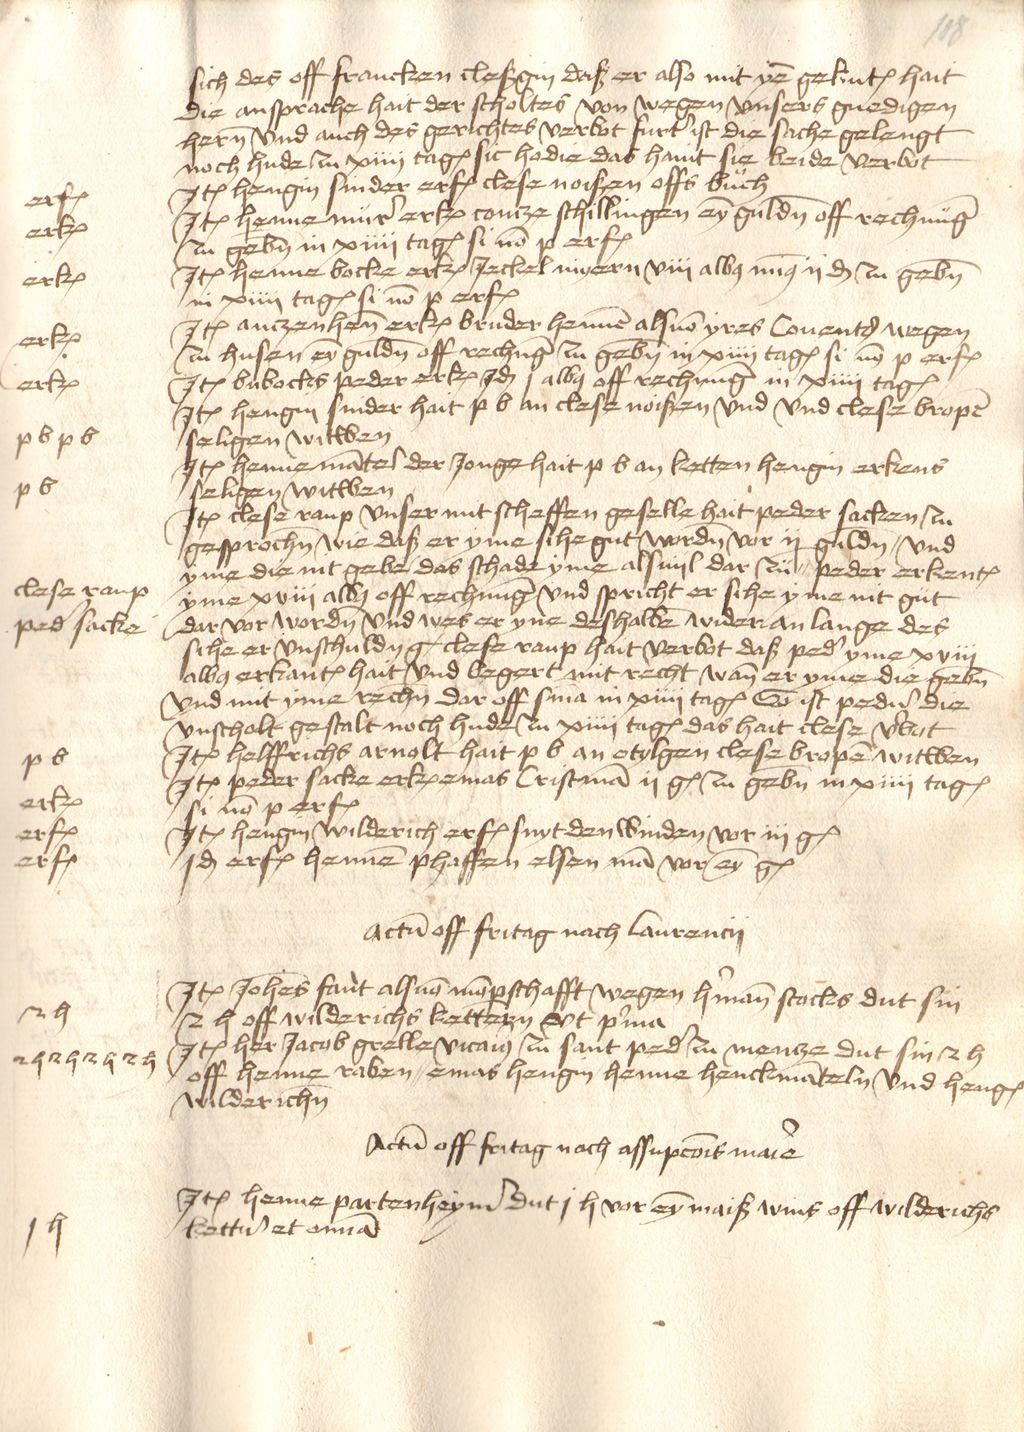 108
sich des off francken cleßgin daß er also mit yẽ gekut hait
die ansprache hait der scholtes von wegen unsers gnedigen
hern und auch des gerichtes verbot furt' ist die sache gelengt
noch hude zu xiiii tag sic hodie das haint sie beide verbot
erf Itẽ hengin snider erf clese noißen offs buch
erk Itẽ henne mur' erk contze schillingen eỹ guldñ off rechnũg
zu gebñ in xiiii tag si nõ p erf
erk Itẽ henne bocke erk Jeckel viii albq ii d zu gebñ
in xiiii tag si nõ p erf
erk Itẽ anczenheñ erk bruder hennẽ alsuõ yres Covents wegen
zu husen eỹ guldñ off rechnũg zu gebñ in xiiii tag si nõ p erf
erk Itẽ bubocks peder erk Id j albq off rechnũg in xiiii tag
p b p b Itẽ hengin snider hait p b an clese noißen und und clese bropẽ
seligen witwen
p b Itẽ henne mãtel der Jonge hait p b an ketten hengin erkens
seligen witwen
Itẽ clese raup unser mit scheffen geselle hait peder sacken zu
gesprochñ wie daß er yme sihe gut wordñ vor ii guldñ und
clese raup yme die nit gebe das schade yme alsuil dar zu peder erkent
yme xviii albq off rechnũg und spricht er sihe yme nit gut
ped' sacke dar vor wordñ und wes er yne deshalbẽ wider an lange des
sihe er unschuldig clese raup hait verbot daß ped' yme xviii
albq erkant hait und begert mit recht wañ er yme die gebñ
und mit yme rechñ dar off sma in xiiii tag So ist ped' die
unscholt gestalt noch hude zu xiiii tag das hait clese v'bot
p b Itẽ helffrichs arnolt hait p b an clese bropẽ witwen
erk Itẽ peder sacke erk emas Cristmã ii g zu gebñ in xiiii tag
si nõ p erf
erf Itẽ hengin wilderich erf snyt den winden vor iii g
erf Id erf hennẽ phaffen elsen mã vor eỹ g
Actũ off fritag nach Laurencii
2 h Itẽ Johẽs faut alsuõ mõpschafft wegen h'mañ stocks dut sin
2 h off wilderichs kettern ut p'ma
2 h 2 h 2 h 2 h Itẽ her Jacob grelle vicariq zu sant ped' zu mentze dut sin 2 h
off henne raben emas hengin henne henckmãteln und heng
wilderichñ
Actũ off fritag nach assupcõis marie
1 h Itẽ henne partenheym' dut j h vor eỹ maiß wins off wilderichs
kett' et omã